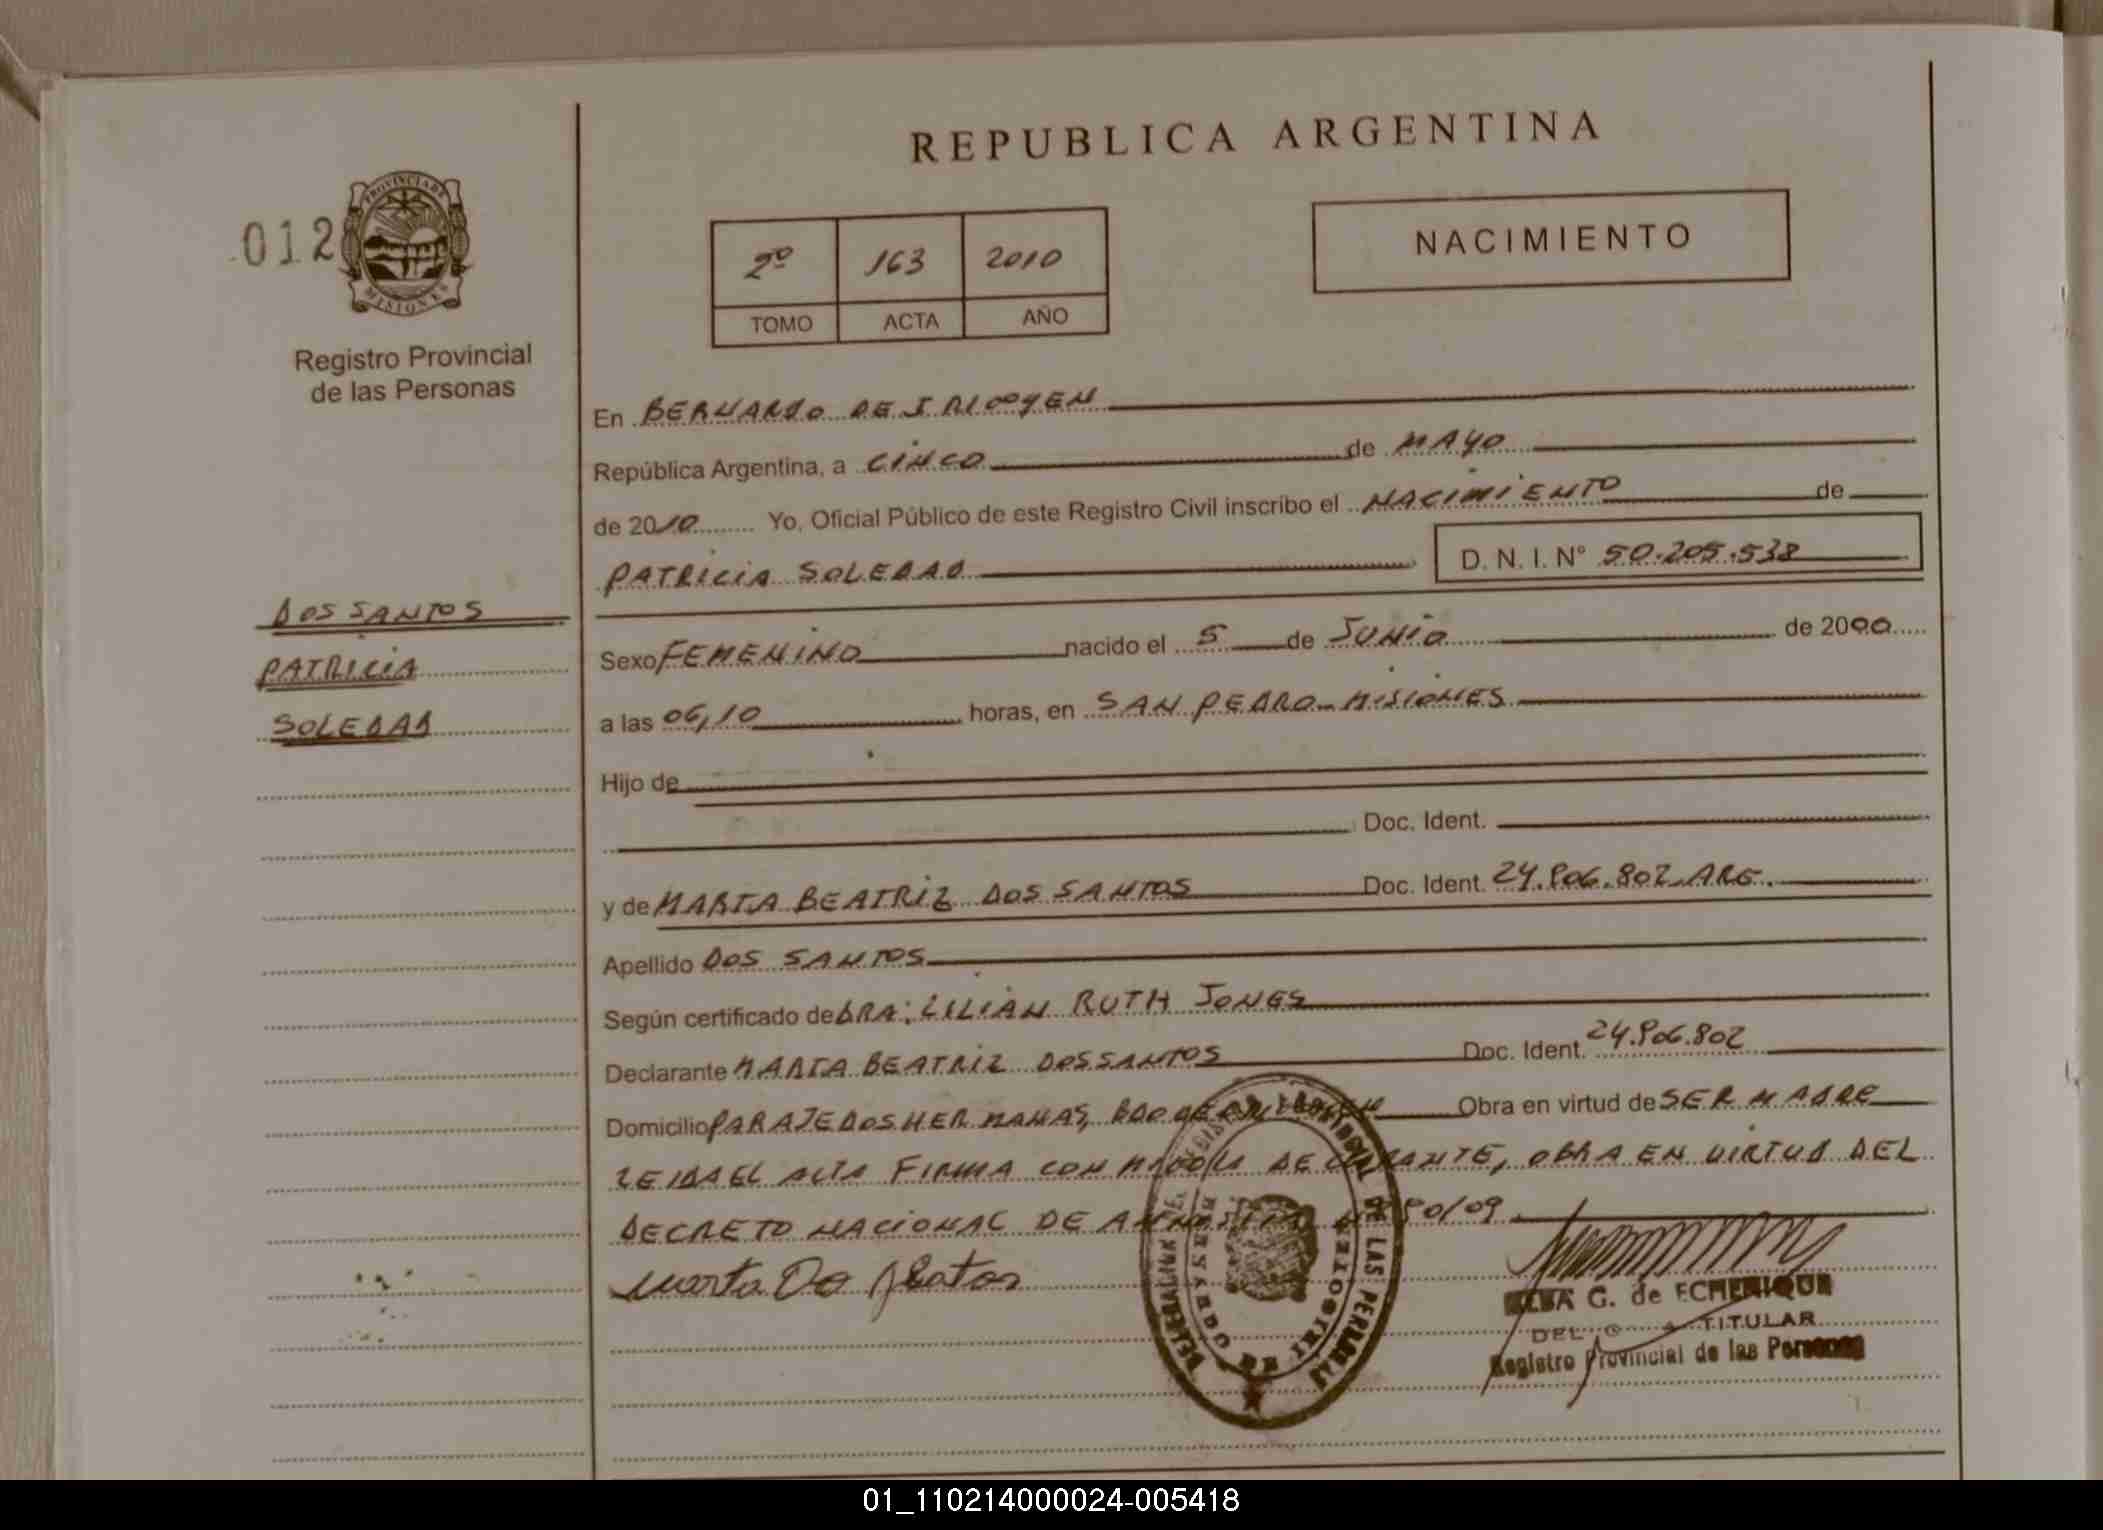 REPUBLICA ARGENTINA
012
PROVINCIA DE
MISIONES
Registro Provincial
de las Personas
2º 163 2010
TOMO ACTA AÑO
NACIMIENTO
En BERNARDO DE IRIGOYEN
República Argentina, a CINCO de MAYO
de 2010 Yo, Oficial Público de este Registro Civil inscribo el NACIMIENTO de
PATRICIA SOLEDAD D. N. I. N° 50.205.538
DOS SANTOS
PATRICIA
SOLEDAD
Sexo FEMENINO nacido el 5 de JUNIO de 2000
a las 06,10 horas, en SAN PEDRO - MISIONES
Hijo de
Doc. Ident.
y de MARTA BEATRIZ DOS SANTOS Doc. Ident. 24.906.802 ARG.
Apellido DOS SANTOS
Según certificado de DRA: LILIAN RUTH JONES
Declarante MARTA BEATRIZ DOS SANTOS Doc. Ident. 24.906.802
Domicilio PARAJE DOS HERMANAS, BDO DE Obra en virtud de SER MADRE
LEIDA EL ACTA FIRMA CON MIGO LA DECLARANTE, OBRA EN VIRTUD DEL
DECRETO NACIONAL DE AMNISTIA 90/09
Marta Do Santos
DELEGACION DEL REGISTRO PROVINCIAL DE LAS PERSONAS
BERNARDO DE IRIGOYEN
G. de ECHENIQUE
TITULAR
Registro Provincial de las Personas
01_110214000024-005418